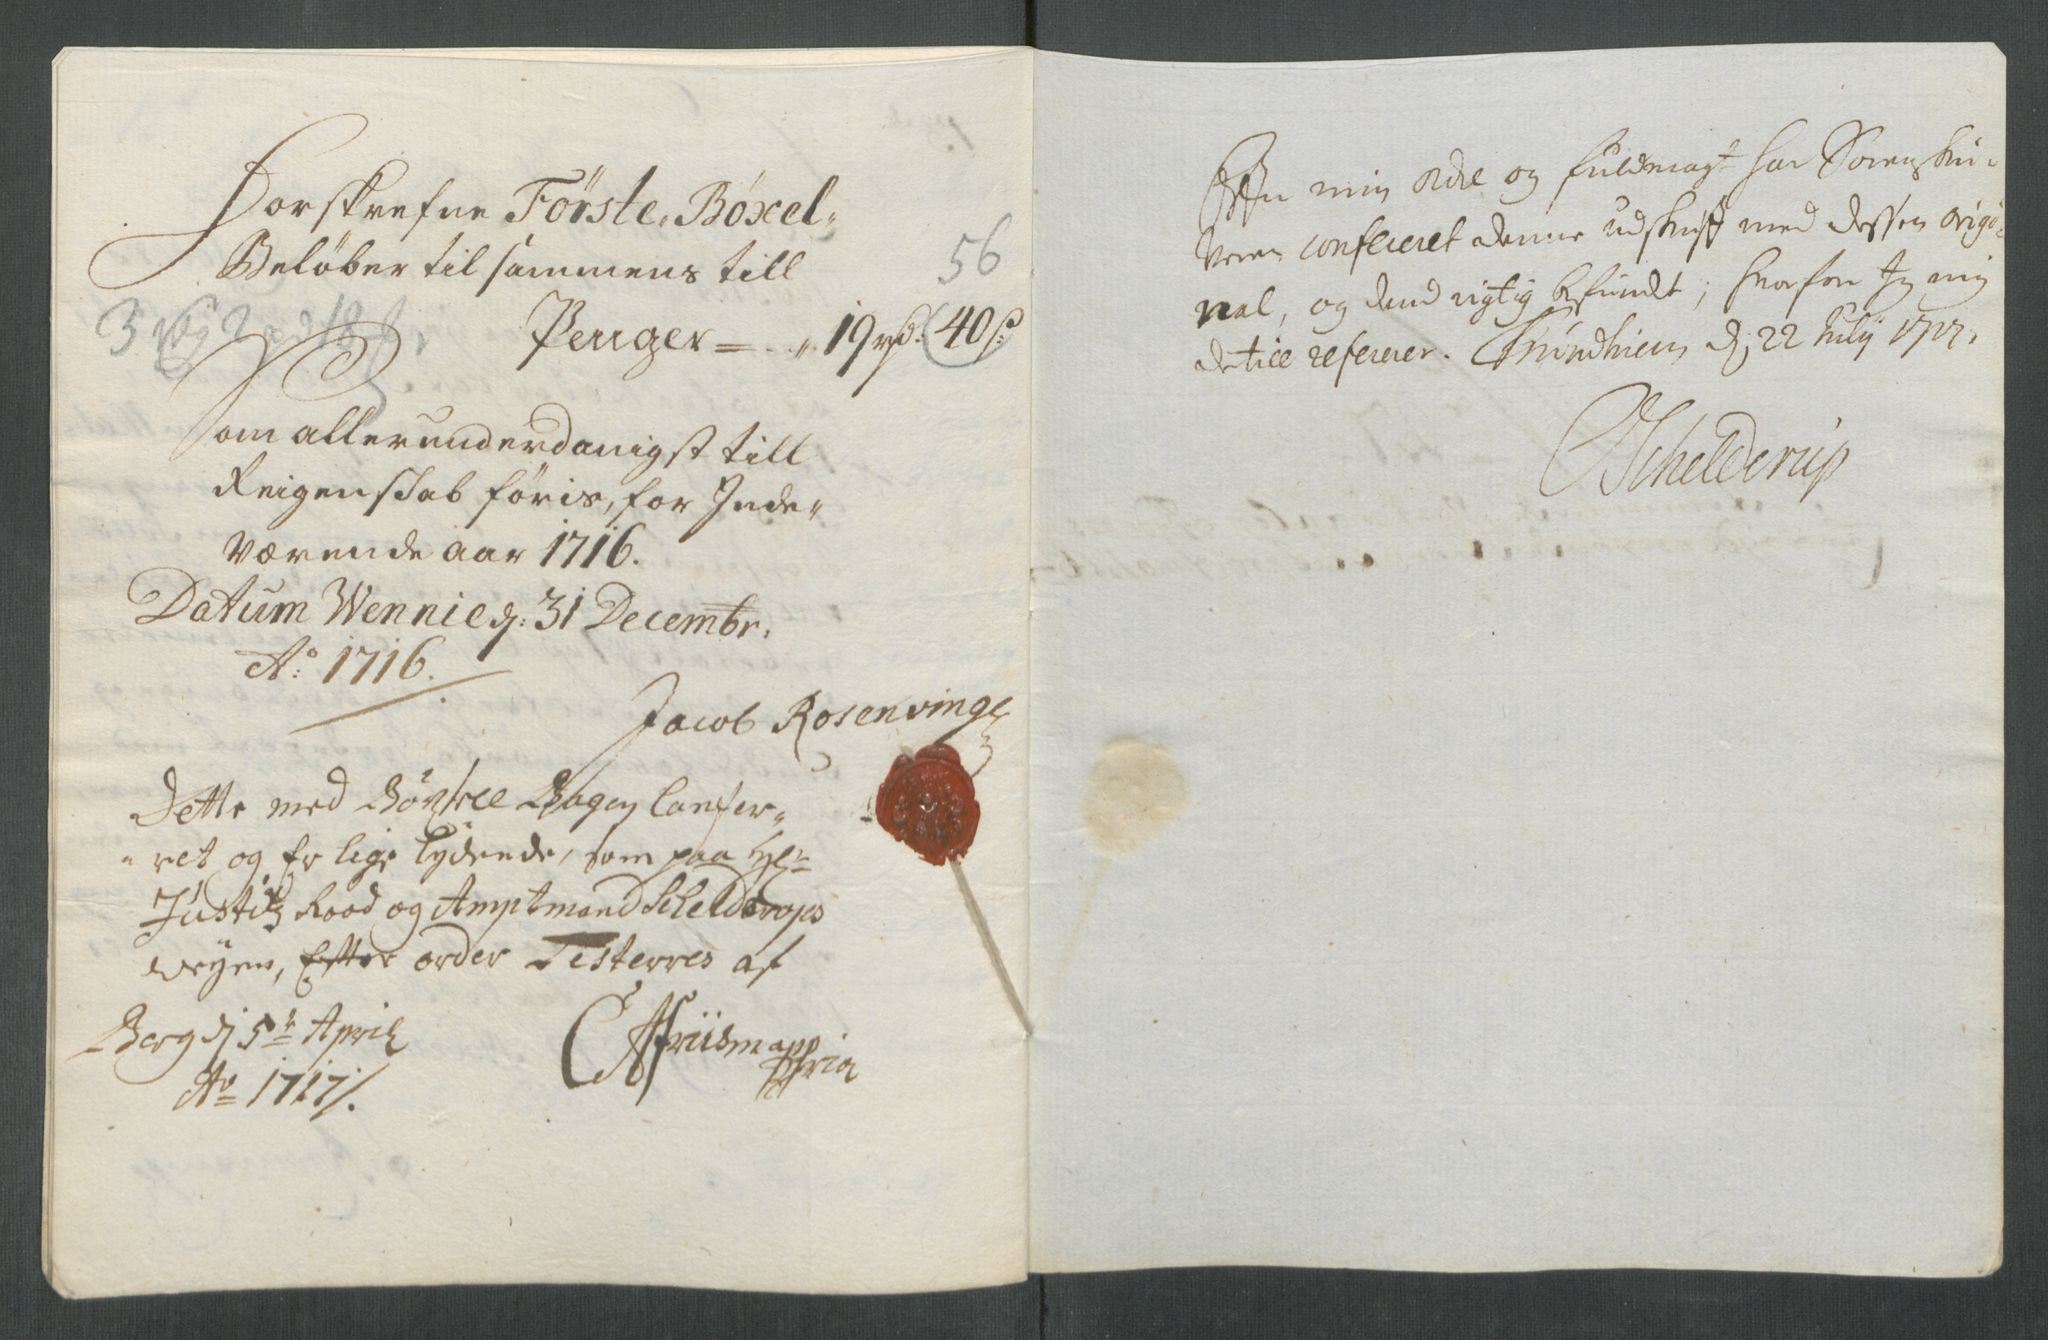 Forskrefne Förste, Böxel„
Beløber til sammens till
56
Penger = „ 19 rd. 40 s:
Som allerunderdanigst till
Reigenskab føris, for Inde„
Værende aar 1716.
Datum Wennie d: 31 Decembr.
Ao: 1716.
Jacob Rosenvinge
Dette med Böxsel Bogen Confer„
„ret og Er lige lydende, som paa Hr:
Justitz Raad og Amptmand Schelderops
veyen, Efter order Testerres af
Berg dj 5te April
Ao 1717/.
Effter min ordre og fuldmagt har Sorenskri„
veren confereret denne udskrifft med dessen origi„
nal, og dend rigtig befundet; hvorfore Jeg mig
dertill refererer. Trundhiem dj 22 Julij 1717.
Schelderup